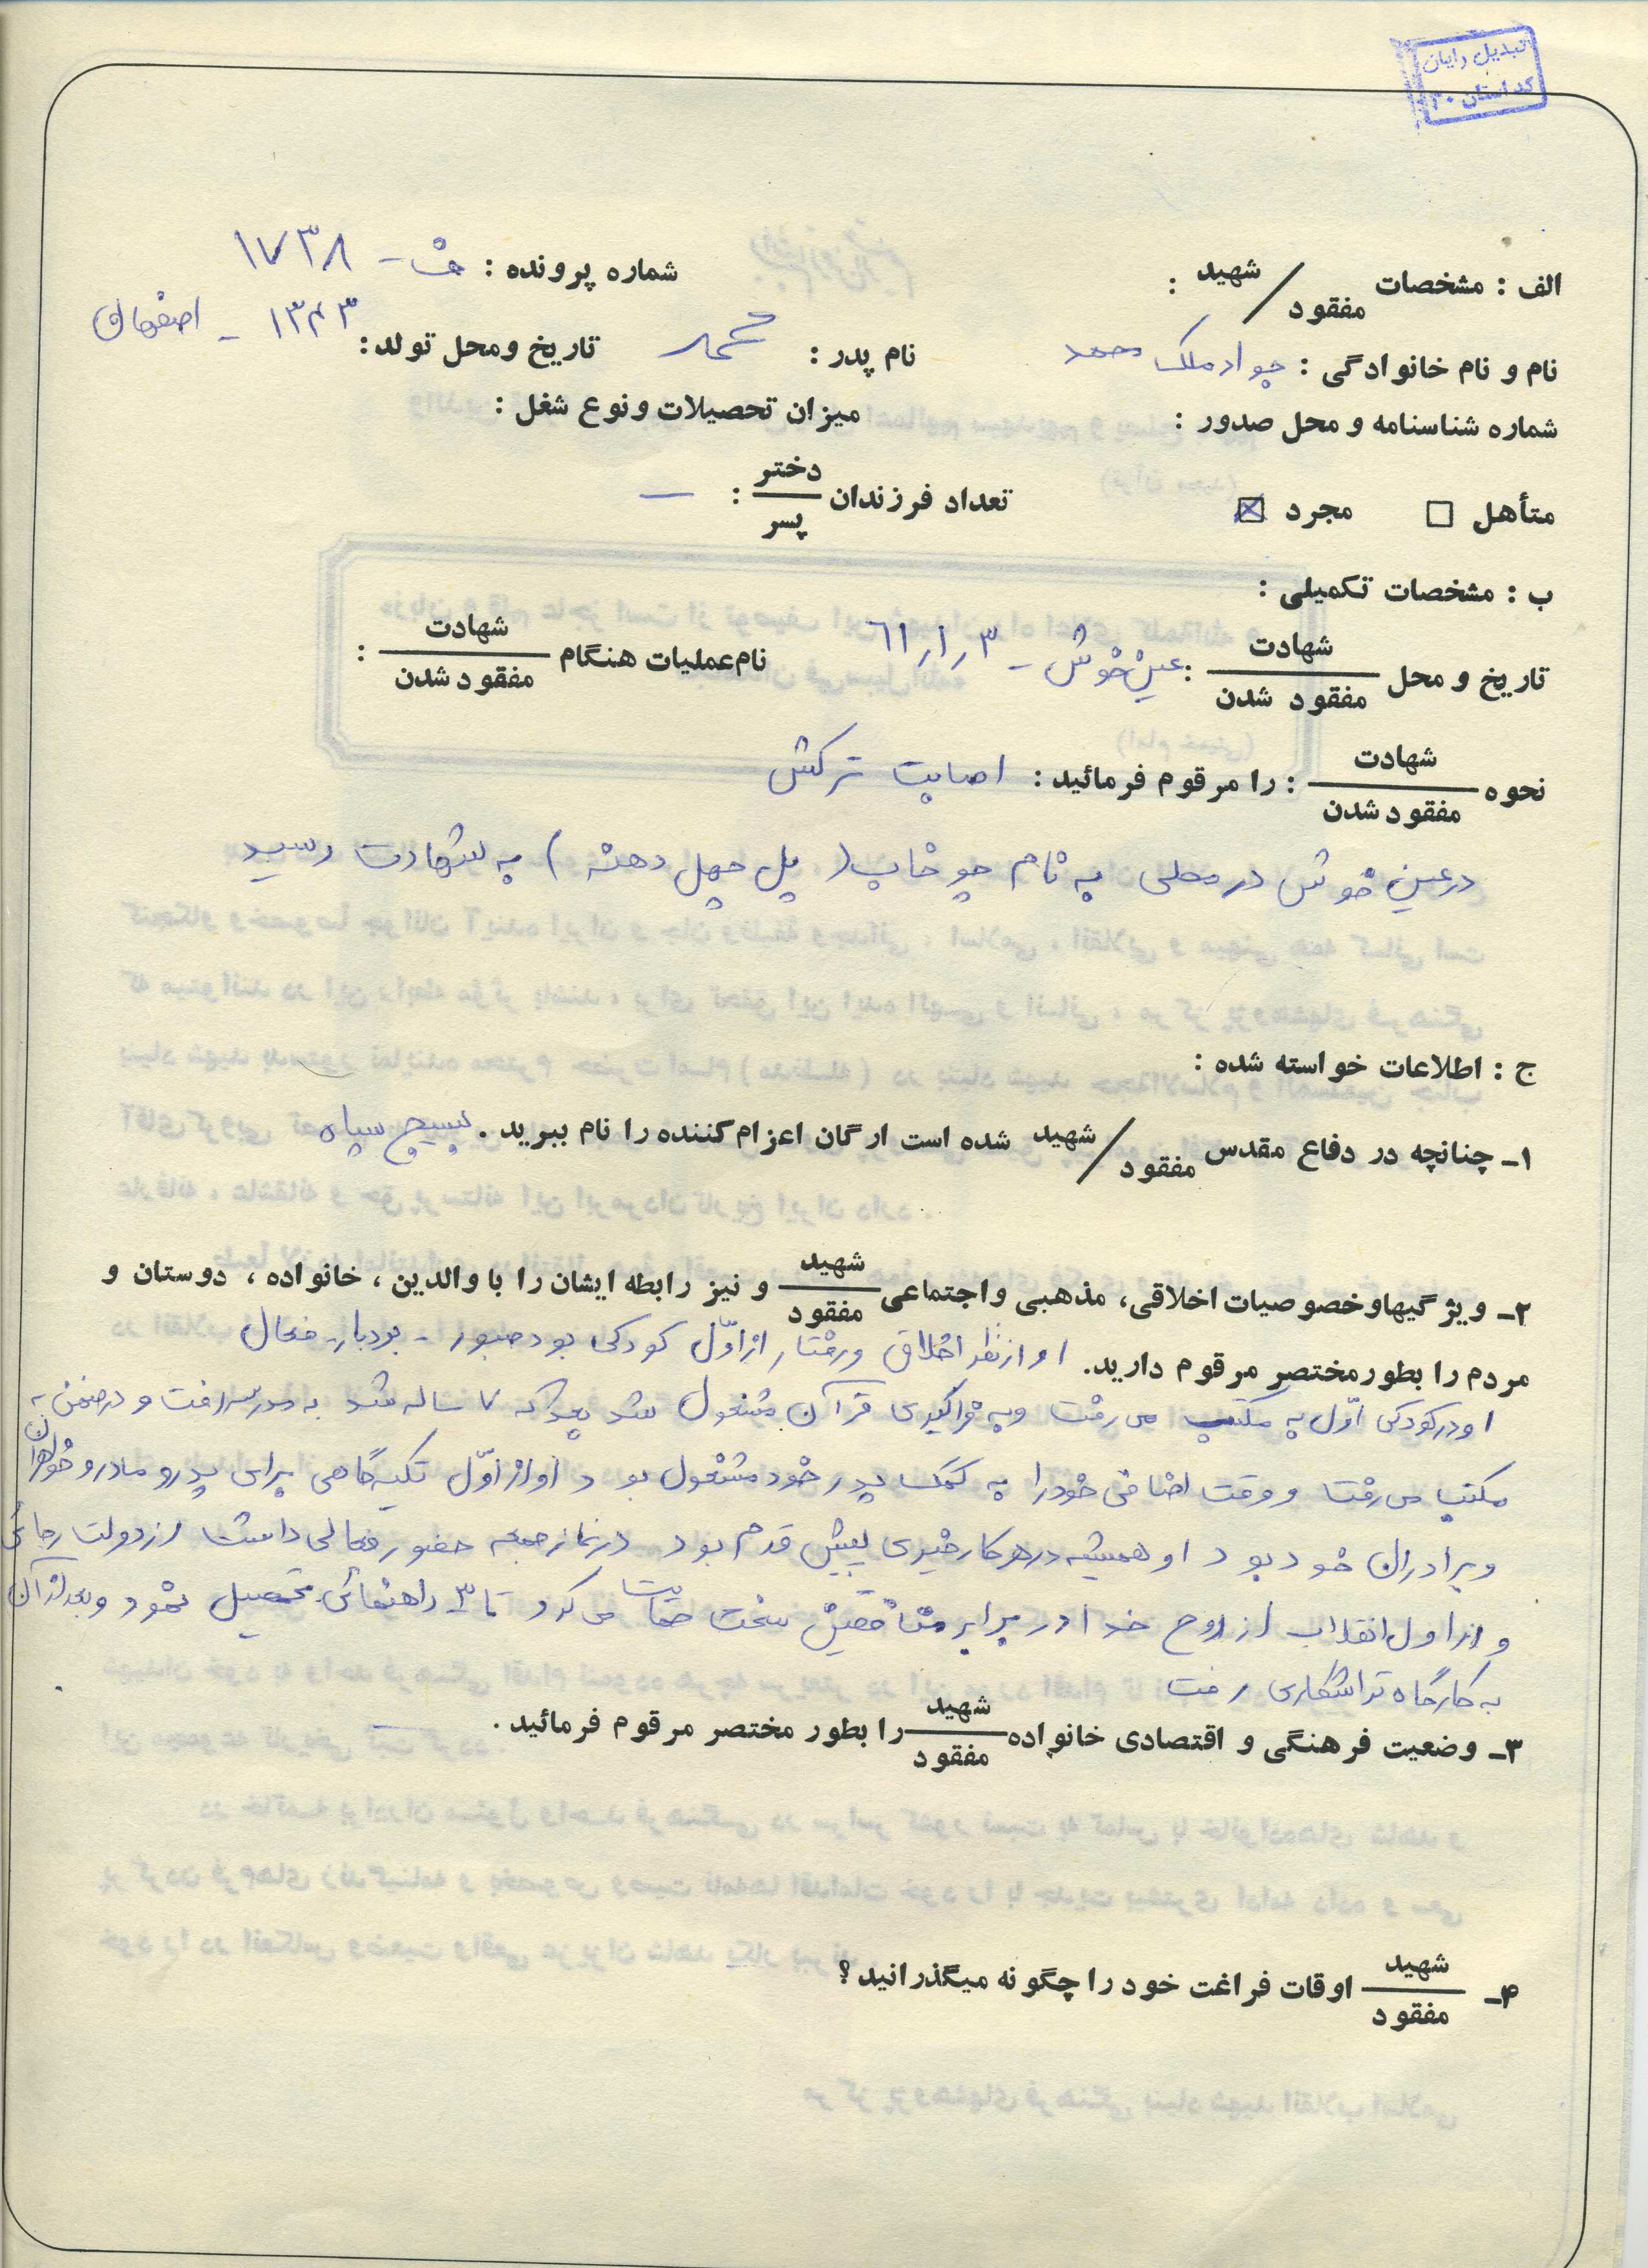 تبدیل رایان
کد استان ۳۰
الف : مشخصات شهید / مفقود :
شماره پرونده : ف - ۱۷۳۸
نام و نام خانوادگی : جواد ملک محمد
نام پدر : محمد
تاریخ ومحل تولد : ۱۳۴۳ - اصفهان
شماره شناسنامه و محل صدور :
میزان تحصیلات ونوع شغل :
متأهل □ مجرد ☒ تعداد فرزندان دختر / پسر : —
ب : مشخصات تکمیلی :
تاریخ و محل شهادت / مفقود شدن : عین خوش - ۶۱/۱/۳ نام عملیات هنگام شهادت / مفقود شدن :
نحوه شهادت / مفقود شدن : را مرقوم فرمائید : اصابت ترکش
در عین خوش در محلی به نام چو خاب ( پل چهل دهنه ) به شهادت رسید
ج : اطلاعات خواسته شده :
۱- چنانچه در دفاع مقدس شهید / مفقود شده است ارگان اعزام کننده را نام ببرید . بسیج سپاه
۲- ویژگیها و خصوصیات اخلاقی، مذهبی و اجتماعی شهید / مفقود و نیز رابطه ایشان را با والدین ، خانواده ، دوستان و
مردم را بطور مختصر مرقوم دارید. او از نظر اخلاق ورفتار از اوّل کودکی بود صبور - بردبار - فعال
او در کودکی اوّل به مکتب می رفت و به فراگیری قرآن مشغول شد بعد که ۷ ساله شد به مدرسه رفت و در ضمن به
مکتب می رفت و وقت اضافی خود را به کمک پدر خود مشغول بود او از اوّل تکیه گاهی برای پدر و مادر و خواهران
وبرادران خود بود او همیشه در هر کار خیری پیش قدم بود در نماز جمعه حضور فعالی داشت از دولت رجائی
و از اول انقلاب از روح خدا در برابر منافقین سخت حمایت می کرد تا ۳ راهنمائی تحصیل نمود وبعد از آن
به کارگاه تراشکاری رفت
۳- وضعیت فرهنگی و اقتصادی خانواده شهید / مفقود را بطور مختصر مرقوم فرمائید .
۴- شهید / مفقود اوقات فراغت خود را چگونه میگذرانید ؟